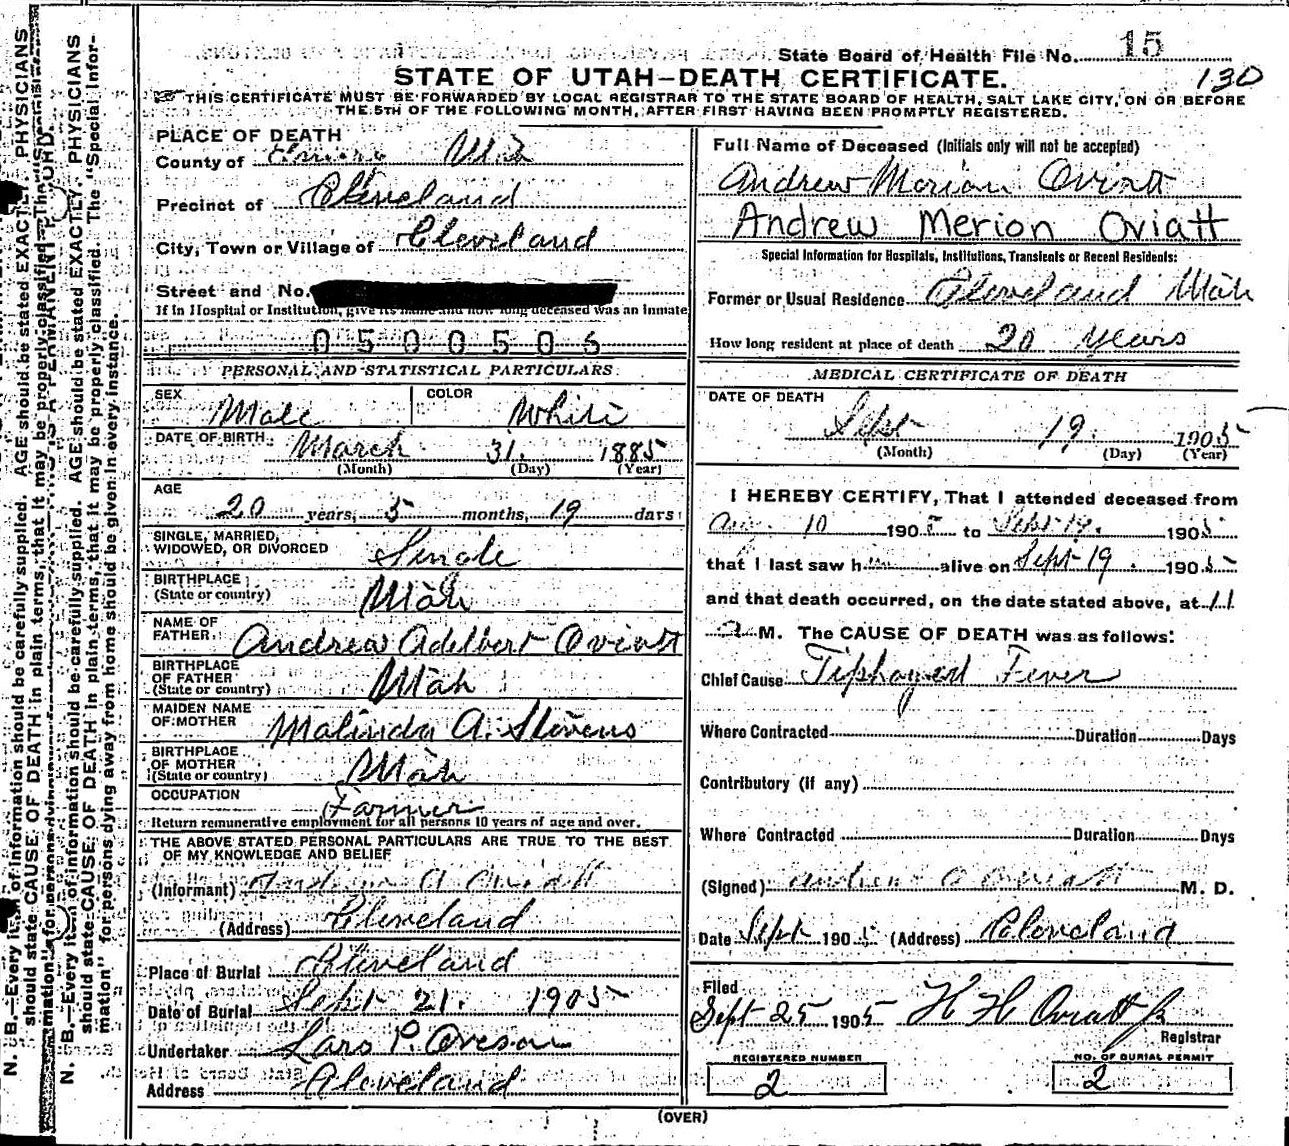 State Board of Health File No. 15
130
STATE OF UTAH—DEATH CERTIFICATE.
THIS CERTIFICATE MUST BE FORWARDED BY LOCAL REGISTRAR TO THE STATE BOARD OF HEALTH, SALT LAKE CITY, ON OR BEFORE
THE 5TH OF THE FOLLOWING MONTH, AFTER FIRST HAVING BEEN PROMPTLY REGISTERED.
PLACE OF DEATH
County of Emery Utah
Precinct of Cleveland
City, Town or Village of Cleveland
Street and No.
If in Hospital or Institution, give its name and how long deceased was an inmate
0500506
PERSONAL AND STATISTICAL PARTICULARS
SEX Male COLOR White
DATE OF BIRTH March 31. 1885
(Month) (Day) (Year)
AGE
20 years, 5 months, 19 days
SINGLE, MARRIED,
WIDOWED, OR DIVORCED Single
BIRTHPLACE
(State or country) Utah
NAME OF
FATHER Andrew Adelbert Oviatt
BIRTHPLACE
OF FATHER
(State or country) Utah
MAIDEN NAME
OF MOTHER Malinda A. Stevens
BIRTHPLACE
OF MOTHER
(State or country) Utah
OCCUPATION Farmer
Return remunerative employment for all persons 10 years of age and over.
THE ABOVE STATED PERSONAL PARTICULARS ARE TRUE TO THE BEST
OF MY KNOWLEDGE AND BELIEF
(Informant) Andrew A Oviatt
(Address) Cleveland
Place of Burial Cleveland
Date of Burial Sept 21. 1905
Undertaker Lars P. Oveson
Address Cleveland
Full Name of Deceased (Initials only will not be accepted)
Andrew Merion Oviatt
Andrew Merion Oviatt
Special Information for Hospitals, Institutions, Transients or Recent Residents:
Former or Usual Residence Cleveland Utah
How long resident at place of death 20 years
MEDICAL CERTIFICATE OF DEATH
DATE OF DEATH
Sept 19. 1905
(Month) (Day) (Year)
I HEREBY CERTIFY, That I attended deceased from
Aug. 10 1905 to Sept 19. 1905
that I last saw him alive on Sept 19. 1905
and that death occurred, on the date stated above, at 11
a M. The CAUSE OF DEATH was as follows:
Chief Cause Tiphoyed Fever
Where Contracted Duration Days
Contributory (if any)
Where Contracted Duration Days
(Signed) Oviatt M. D.
Date Sept 1905 (Address) Cleveland
Filed
Sept 25 1905 H H Oviatt Jr
Registrar
REGISTERED NUMBER
2
NO. OF BURIAL PERMIT
2
(OVER)
N. B.—Every item of information should be carefully supplied. AGE should be stated EXACTLY. PHYSICIANS
should state CAUSE OF DEATH in plain terms, that it may be properly classified. The "Special Infor-
mation" for persons dying away from home should be given in every instance.